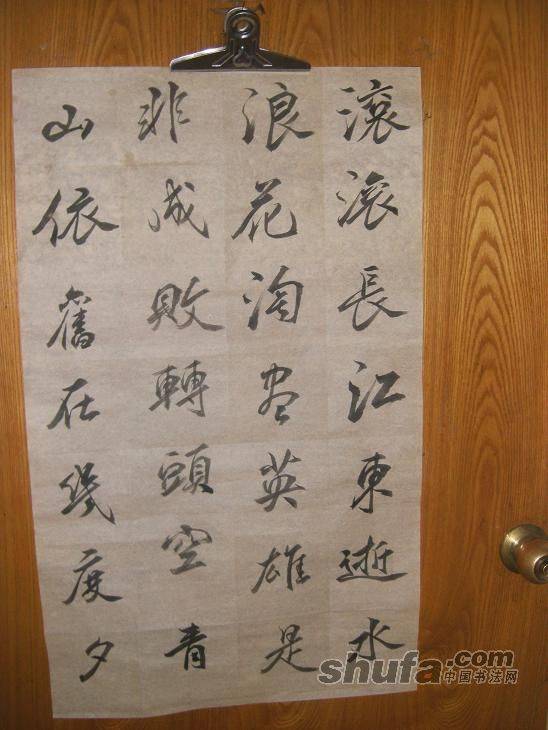 滾滾長江東逝水
浪花淘盡英雄是
非成敗轉頭空青
山依舊在幾度夕
shufa.com
中国书法网